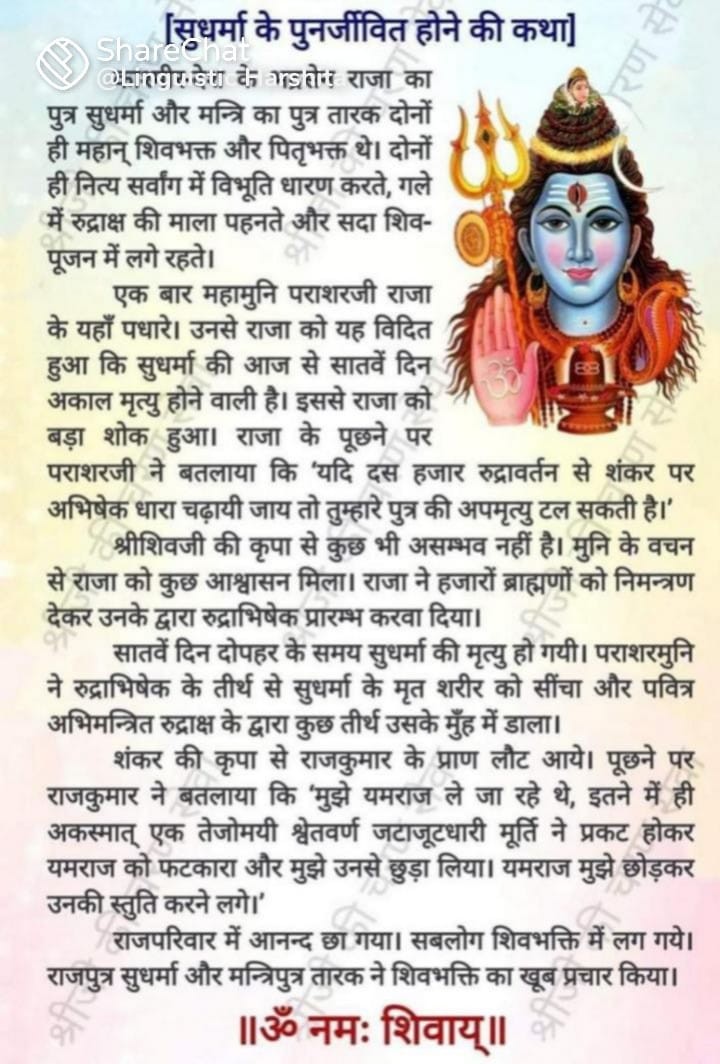 [सुधर्मा के पुनर्जीवित होने की कथा]
ShareChat
@Linguistic Harshita
के राजा का
पुत्र सुधर्मा और मन्त्रि का पुत्र तारक दोनों
ही महान् शिवभक्त और पितृभक्त थे। दोनों
ही नित्य सर्वांग में विभूति धारण करते, गले
में रुद्राक्ष की माला पहनते और सदा शिव-
पूजन में लगे रहते।
एक बार महामुनि पराशरजी राजा
के यहाँ पधारे। उनसे राजा को यह विदित
हुआ कि सुधर्मा की आज से सातवें दिन
अकाल मृत्यु होने वाली है। इससे राजा को
बड़ा शोक हुआ। राजा के पूछने पर
पराशरजी ने बतलाया कि 'यदि दस हजार रुद्रावर्तन से शंकर पर
अभिषेक धारा चढ़ायी जाय तो तुम्हारे पुत्र की अपमृत्यु टल सकती है।'
श्रीशिवजी की कृपा से कुछ भी असम्भव नहीं है। मुनि के वचन
से राजा को कुछ आश्वासन मिला। राजा ने हजारों ब्राह्मणों को निमन्त्रण
देकर उनके द्वारा रुद्राभिषेक प्रारम्भ करवा दिया।
सातवें दिन दोपहर के समय सुधर्मा की मृत्यु हो गयी। पराशरमुनि
ने रुद्राभिषेक के तीर्थ से सुधर्मा के मृत शरीर को सींचा और पवित्र
अभिमन्त्रित रुद्राक्ष के द्वारा कुछ तीर्थ उसके मुँह में डाला।
शंकर की कृपा से राजकुमार के प्राण लौट आये। पूछने पर
राजकुमार ने बतलाया कि 'मुझे यमराज ले जा रहे थे, इतने में ही
अकस्मात् एक तेजोमयी श्वेतवर्ण जटाजूटधारी मूर्ति ने प्रकट होकर
यमराज को फटकारा और मुझे उनसे छुड़ा लिया। यमराज मुझे छोड़कर
उनकी स्तुति करने लगे।'
राजपरिवार में आनन्द छा गया। सबलोग शिवभक्ति में लग गये।
राजपुत्र सुधर्मा और मन्त्रिपुत्र तारक ने शिवभक्ति का खूब प्रचार किया।
॥ॐ नमः शिवाय्॥
ॐ